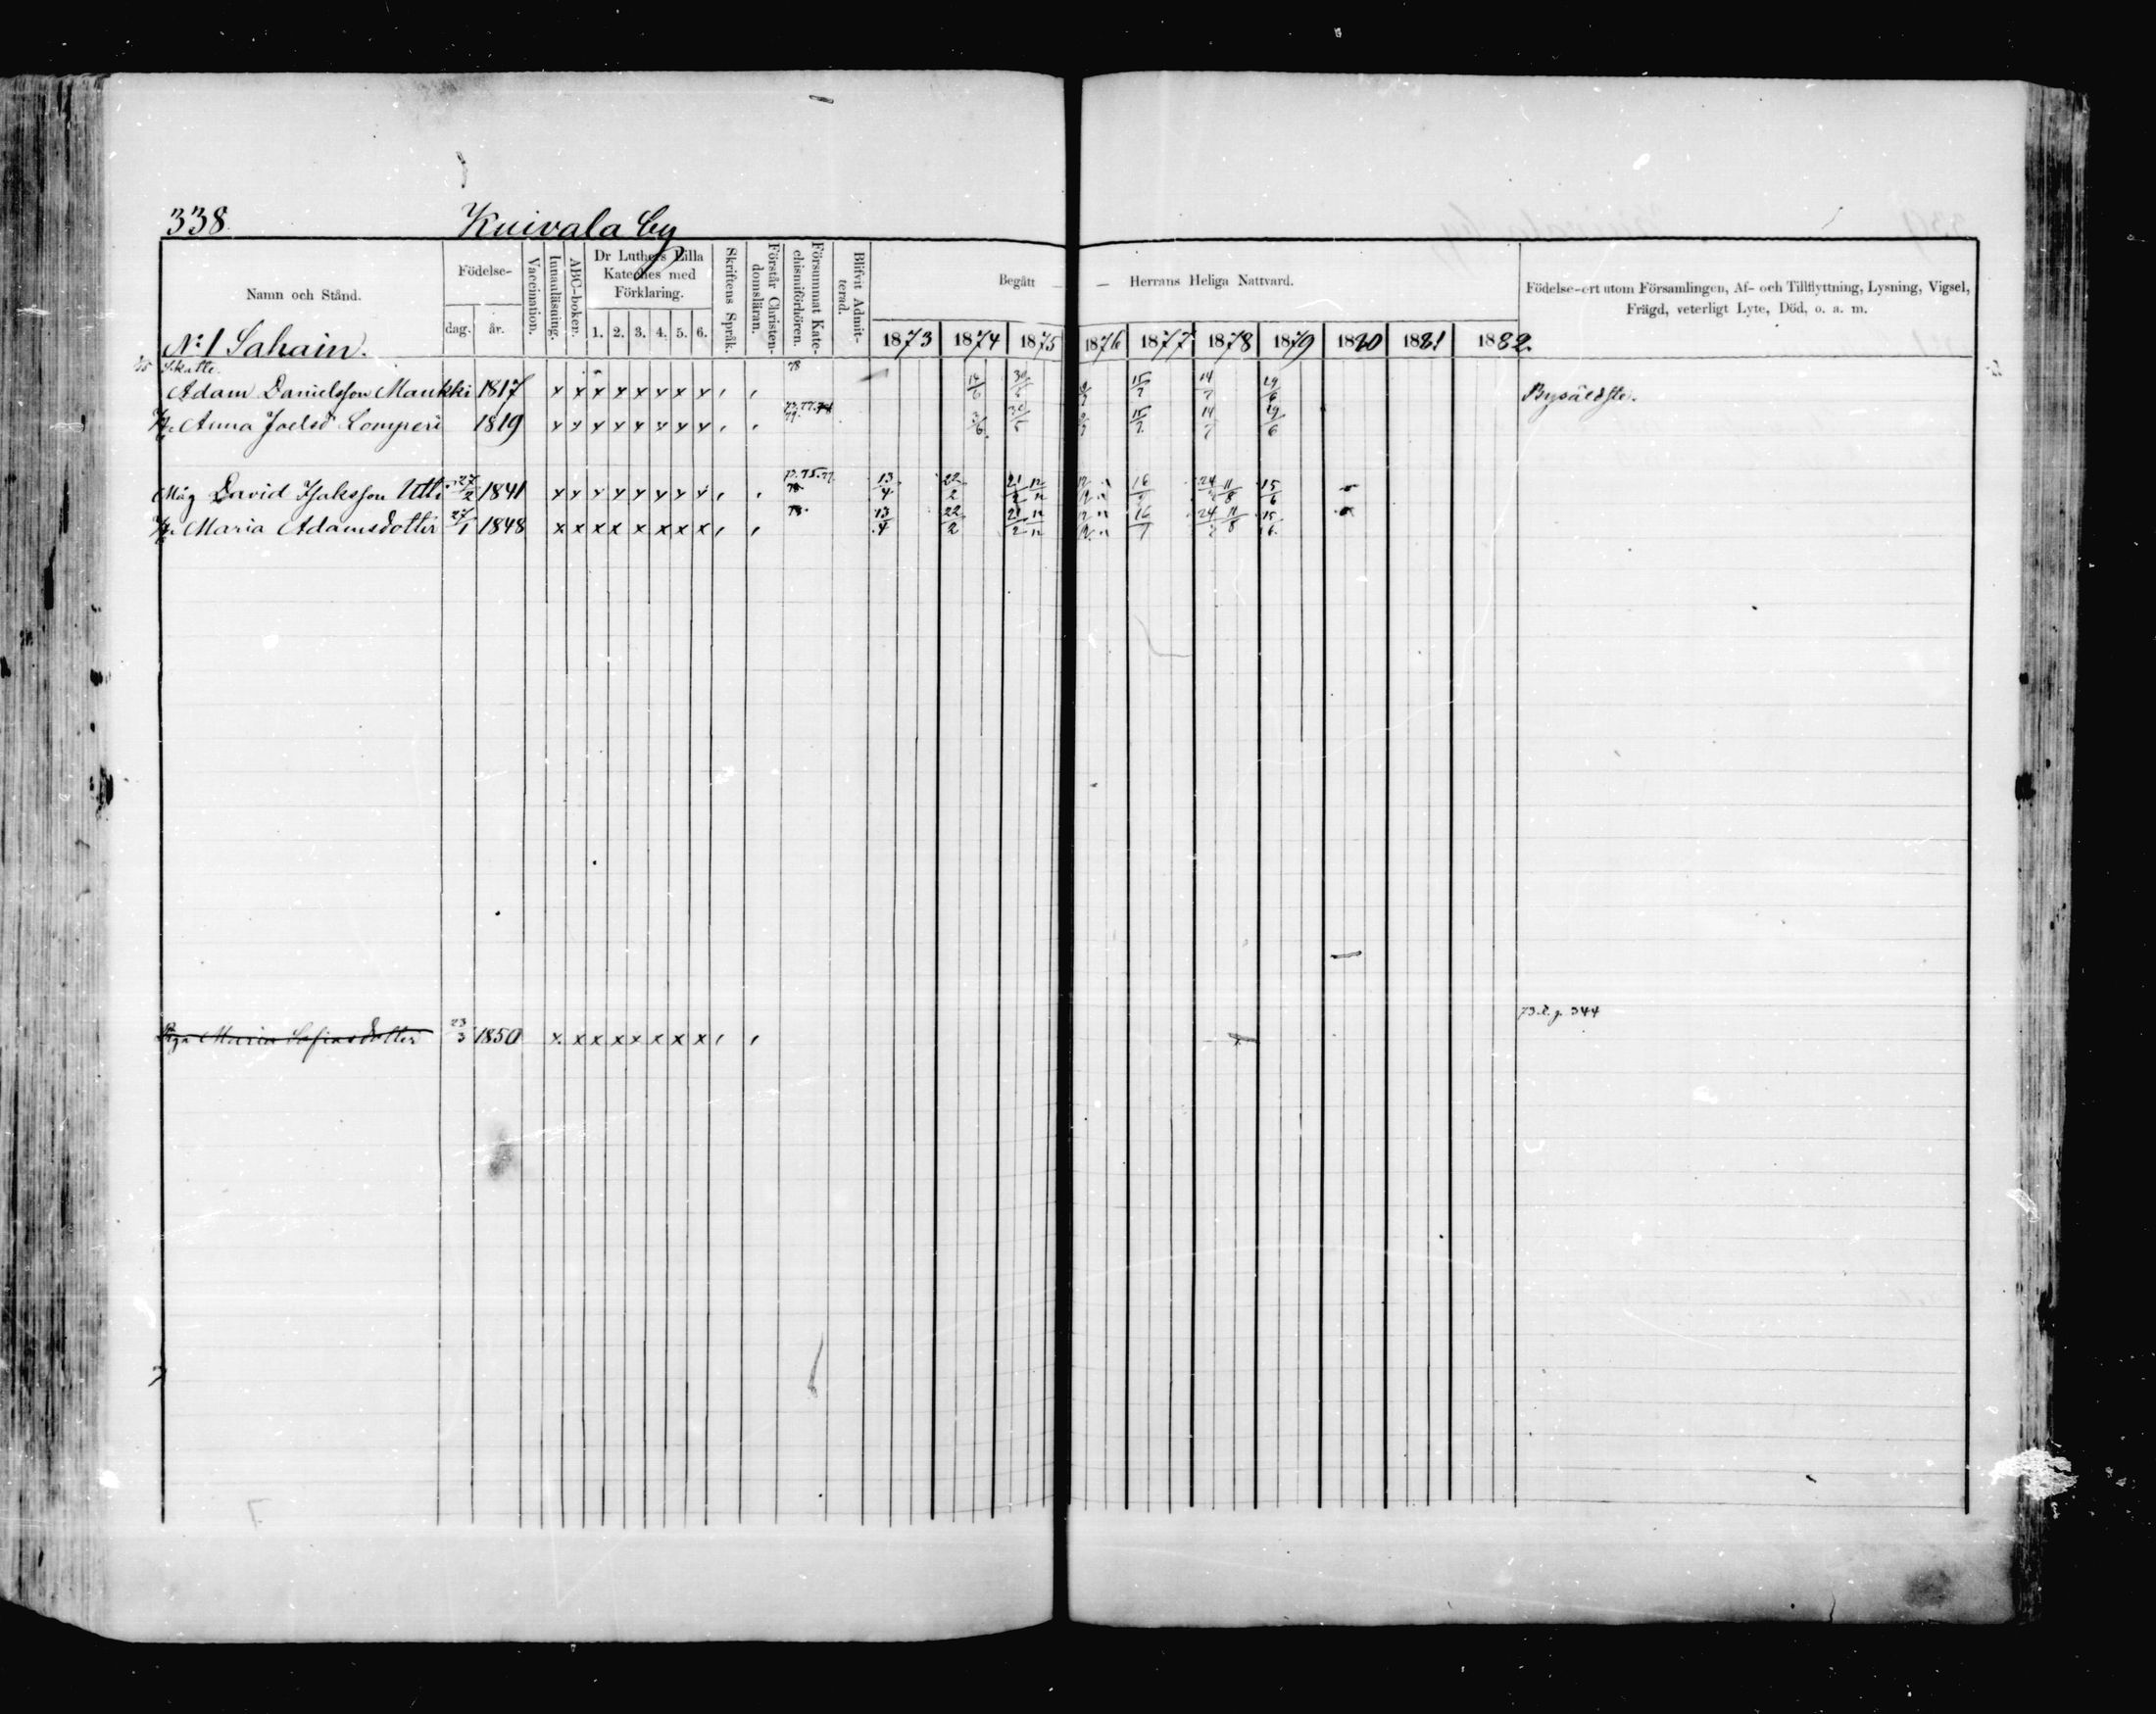 338.
Kuivala by
Namn och Stånd.
Födelse-
dag. år.
Vaccination.
Innanläsning.
ABC-boken.
Dr Luthers Lilla
Kateches med
Förklaring.
1. 2. 3. 4. 5. 6.
Skriftens Språk.
Förstår Christen-
domsläran.
Försummat Kate-
chismiförhören.
Blifvit Admit-
terad.
Begått — — Herrans Heliga Nattvard.
1873 1874 1875 1876 1877 1878 1879 1880 1881 1882.
Födelse-ort utom Församlingen, Af- och Tillflyttning, Lysning, Vigsel,
Frägd, veterligt Lyte, Död, o. a. m.
No 1 Sahain.
Skatte. 78
Adam Danielsson Maukki 1817 x x x x x x x x 30/5 15/7 14/7 29/6 Byäldste.
Anna Joelsd Lomperi 1819 x x x x x x x x 3/6 30/5 15/7 14/7 29/6
Måg David Isaksson Utti 27/2 1841 x x x x x x x x 13/4 22/2 21/2 12/12 16/7 24/2 11/8 15/6
Maria Adamsdotter 27/1 1848 x x x x x x x x 78. 13/4 22/2 21/2 12/12 16/7 24/2 11/8 15/6
73. 344
Piga Maria 23/3 1850 x x x x x x x x